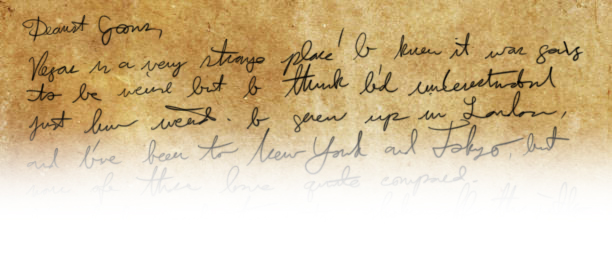 Dearest Goons,
Vegas is a very strange place! I knew it was going
to be weird but I think I'd underestimated
just how weird. I grew up in London,
and I've been to New York and Tokyo, but
them have quite compared.